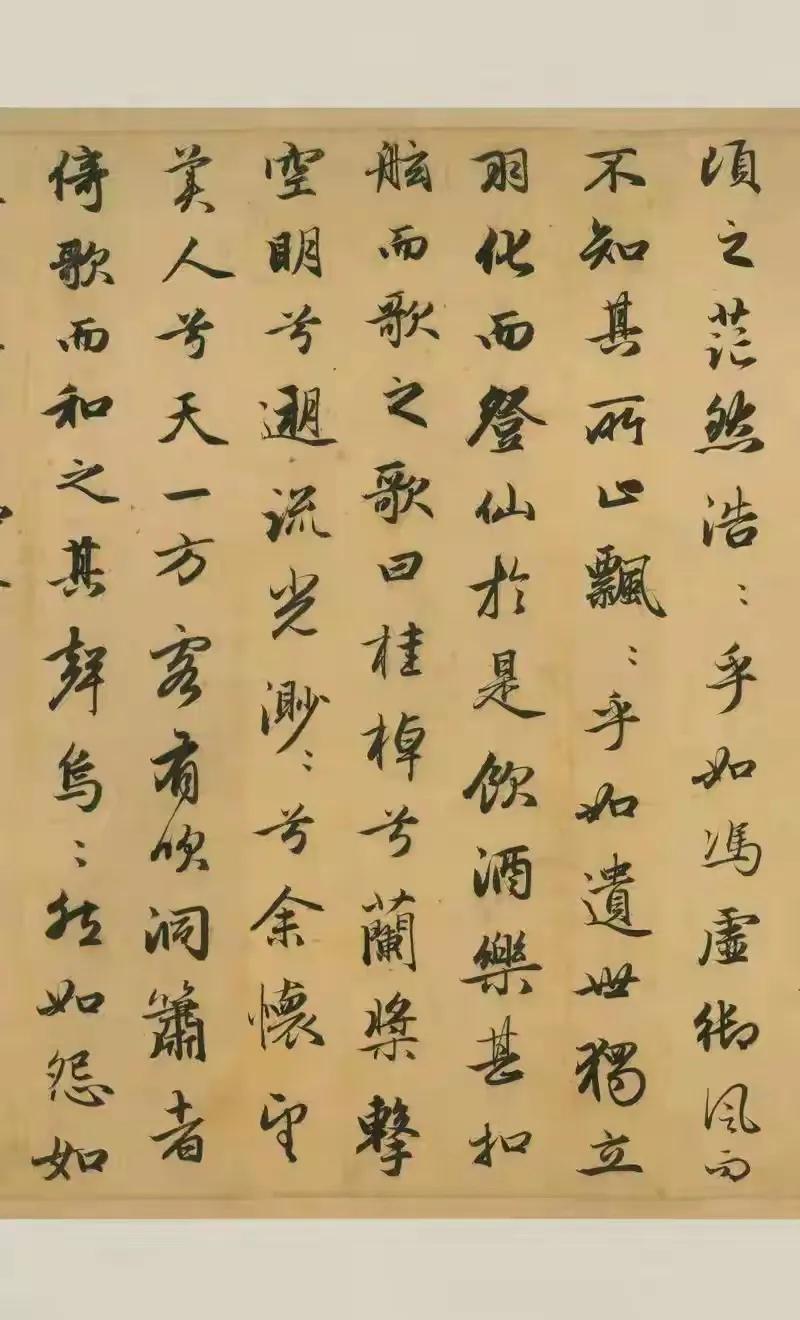 頃之茫然浩:乎如馮虛御風而
不知其所止飄:乎如遺世獨立
羽化而登仙於是飲酒樂甚扣
舷而歌之歌曰桂棹兮蘭槳擊
空明兮遡流光渺:兮余懷望
美人兮天一方客有吹洞簫者
倚歌而和之其聲烏:然如怨如